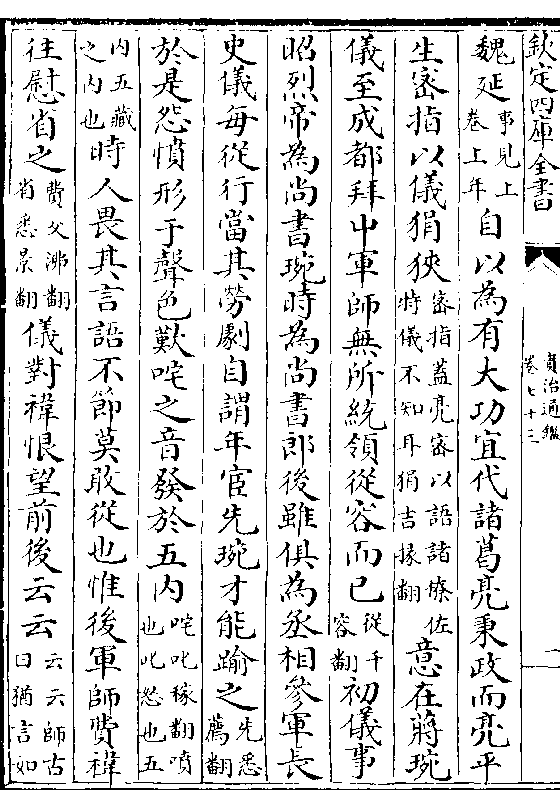 欽定四庫全書
資治通鑑
卷七十三
二
魏延事見上卷上年自以為有大功宜代諸葛亮秉政而亮平
生密指以儀狷狹密指蓋亮密以語諸僚佐特儀不知耳狷吉掾翻意在蔣琬
儀至成都拜中軍師無所統領從容而已從千容翻初儀事
昭烈帝為尚書琬時為尚書郎後雖俱為丞相參軍長
史儀每從行當其勞劇自謂年宦先琬才能踰之先悉薦翻
於是怨憤形于聲色歎咤之音發於五内咤叱稼翻噴也叱怒也五
内五藏之内也時人畏其言語不節莫敢從也惟後軍師費禕
往慰省之費父沸翻省悉景翻儀對禕恨望前後云云云云師古曰猶言如